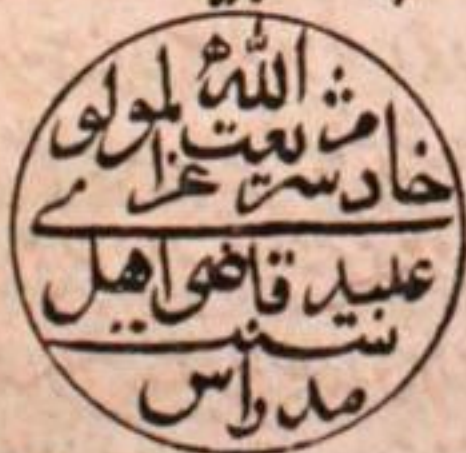 الله
خادم شریعت غرا المولوی
عبید قاضی اهل
سنت
مدراس